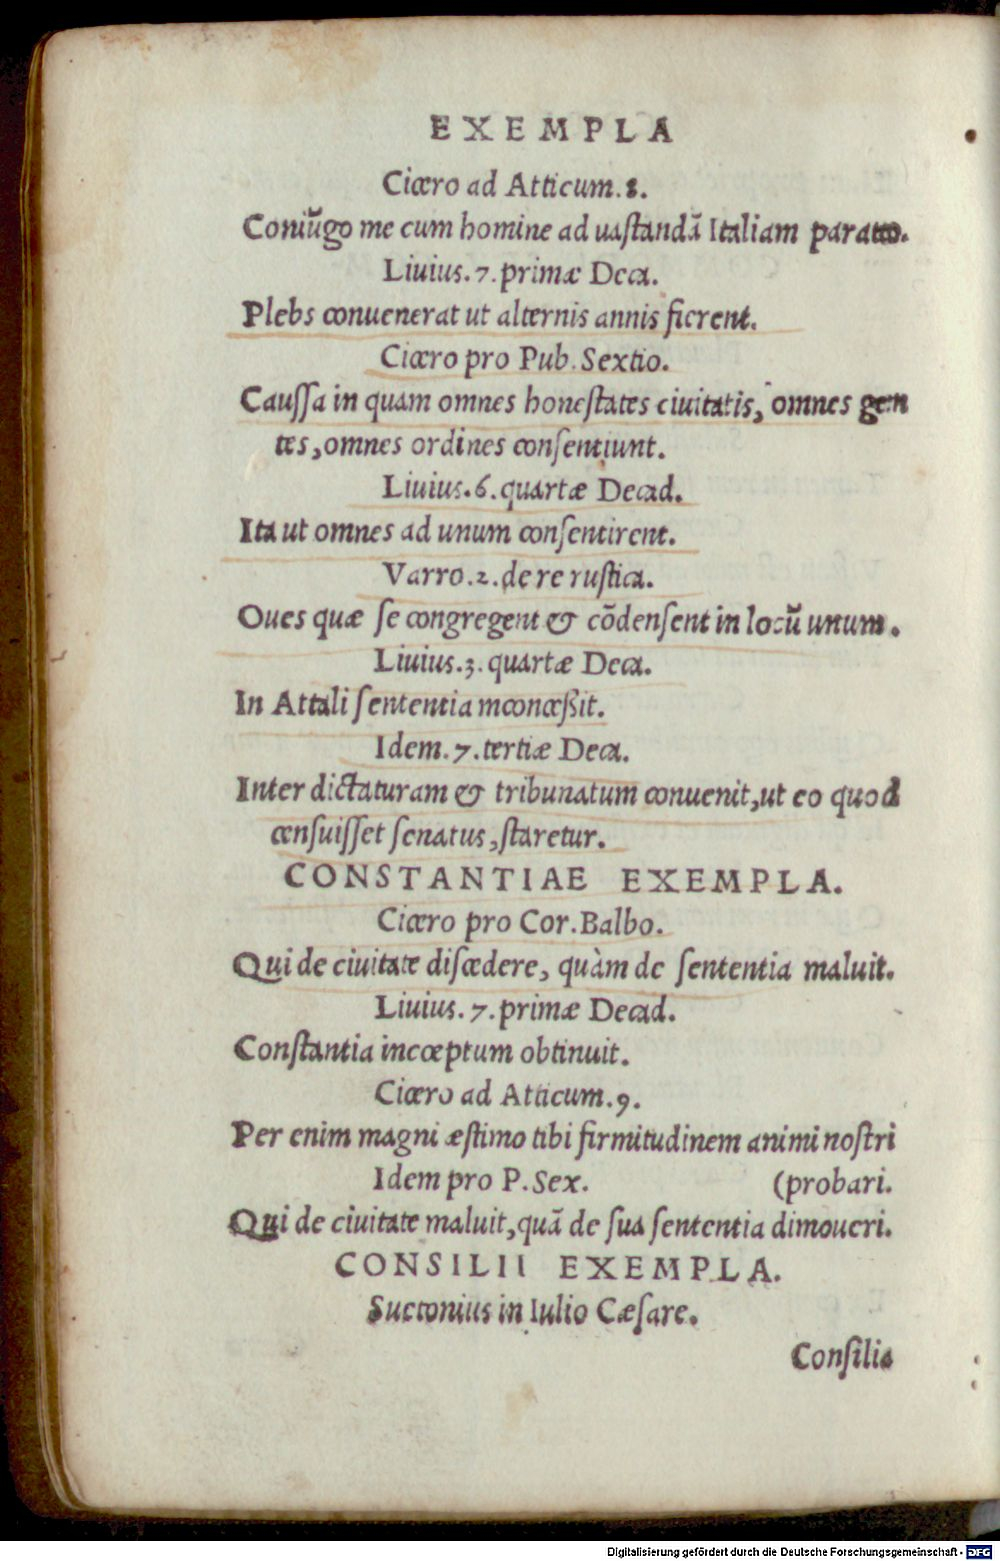 EXEMPLA
Cicero ad Atticum.8.
Coniũgo me cum homine ad uaſtandã Italiam parato.
Liuius.7.primæ Deca.
Plebs conuenerat ut alternis annis fierent.
Cicero pro Pub.Sextio.
Cauſſa in quam omnes honeſtates ciuitatis, omnes gen
tes,omnes ordines conſentiunt.
Liuius.6.quartæ Decad.
Ita ut omnes ad unum conſentirent.
Varro.2.de re ruſtica.
Oues quæ ſe congregent & cõdenſent in locũ unum.
Liuius.3.quartæ Deca.
In Attali ſententia mconceßit.
Idem.7.tertiæ Deca.
Inter dictaturam & tribunatum conuenit,ut eo quod
cenſuiſſet ſenatus,ſtaretur.
CONSTANTIAE EXEMPLA.
Cicero pro Cor.Balbo.
Qui de ciuitate diſcedere, quàm de ſententia maluit.
Liuius.7.primæ Decad.
Conſtantia incœptum obtinuit.
Cicero ad Atticum.9.
Per enim magni æſtimo tibi firmitudinem animi noſtri
Idem pro P.Sex. (probari.
Qui de ciuitate maluit,quã de ſua ſententia dimoueri.
CONSILII EXEMPLA.
Suetonius in Iulio Cæſare.
Conſilia
Digitalisierung gefördert durch die Deutsche Forschungsgemeinschaft - DFG